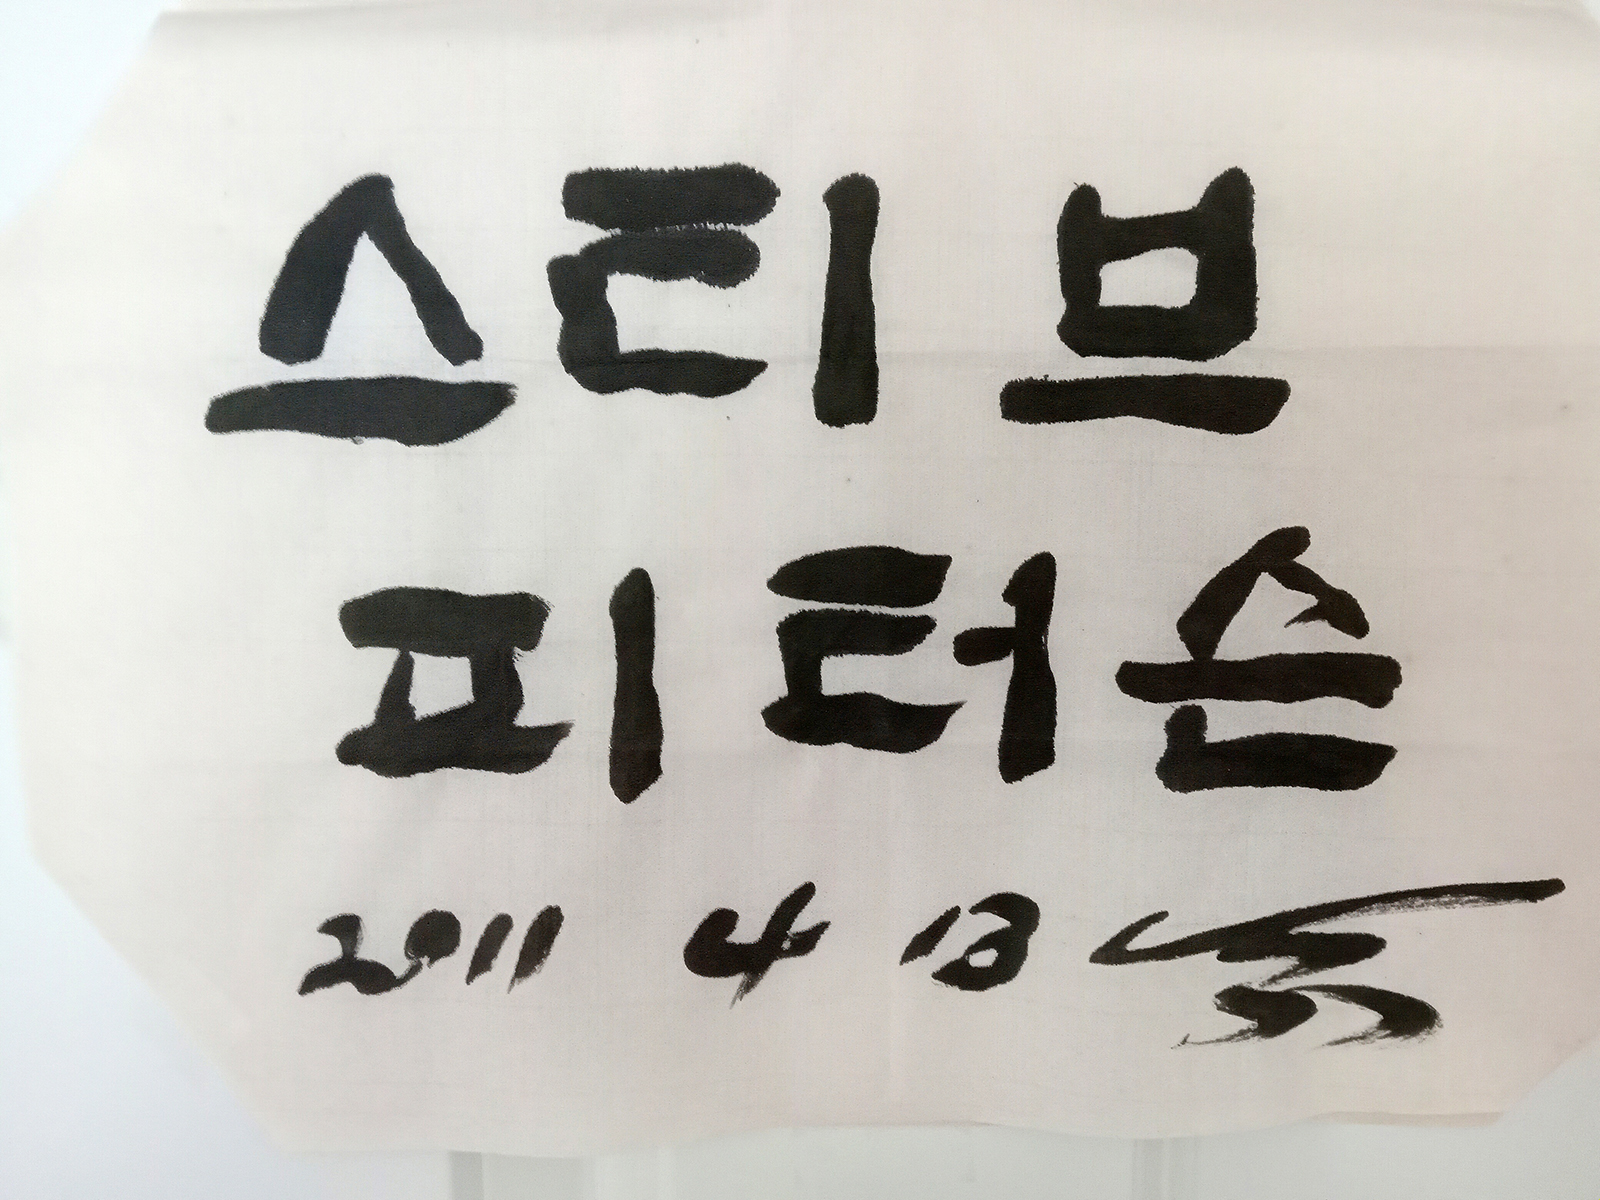 스티브
피터손
2011 4 13